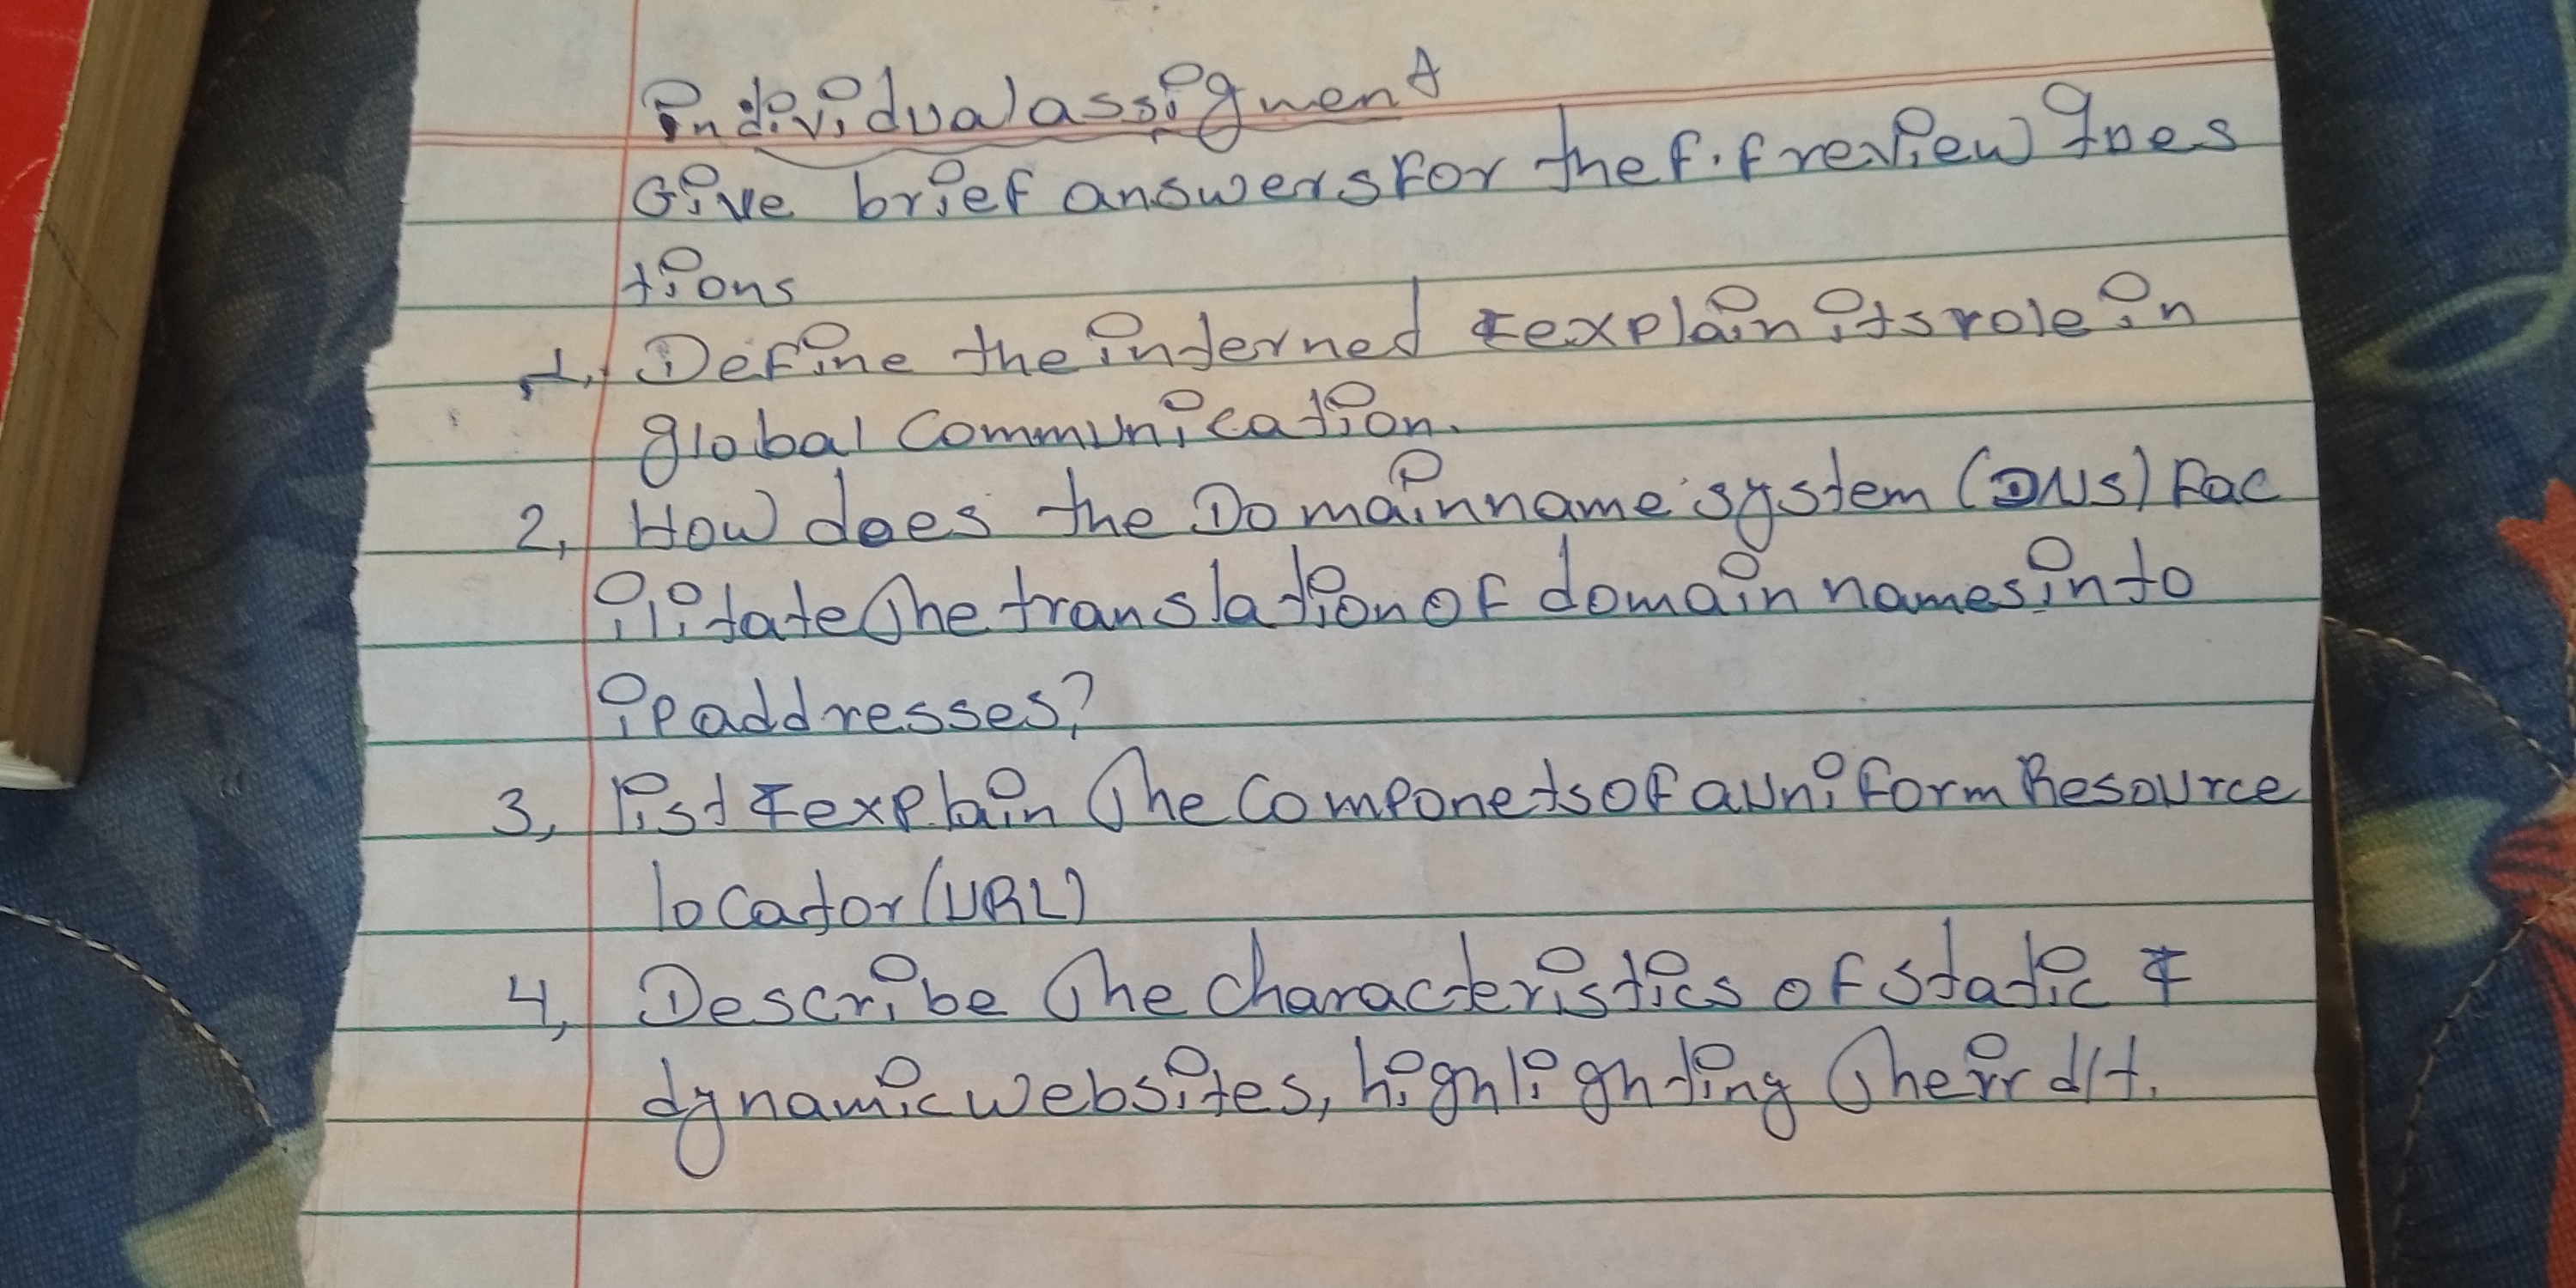 individual assignment
Give brief answers for the f.f review ques
tions
1, Define the interned & explain its role in
global communication.
2, How does the Domain name system (DNS) Fac
ilitate the translation of domain names into
ip addresses?
3, list & explain the Componets of a uniform Resource
locator (URL)
4, Describe the characteristics of static &
dynamic websites, highlighting their d/t.